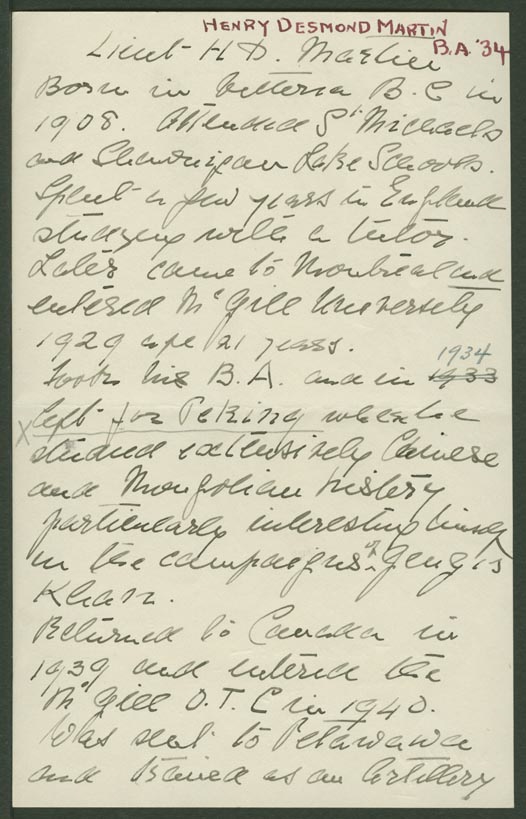 HENRY DESMOND MARTIN
B.A. '34
Lieut H D. Martin
Born in Victoria B. C in
1908. Attended St Michaels
and Shawnigan Lake Schools.
Spent a few years in England
studying with a tutor.
Later came to Montreal and
entered McGill University
1929 age 21 years.
Took his B.A. and in 1933 1934
left for Peking where he
studied extensively Chinese
and Mongolian history
particularly interesting himself
in the campaigns of Gengis
Khan.
Returned to Canada in
1939 and entered the
McGill O.T.C in 1940.
Was sent to Petawawa
and trained as an Artillery